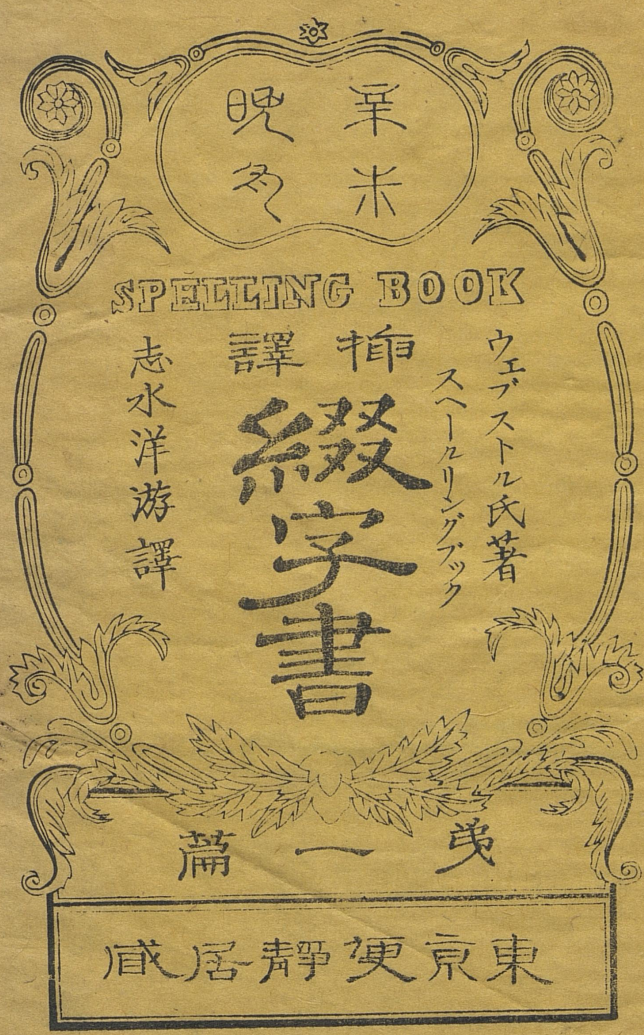 辛未
晩冬
SPELLING BOOK
挿譯
ウェブストル氏著
スヘールリングブック
綴字書
志水洋游譯
苐一篇
東京靜居蔵